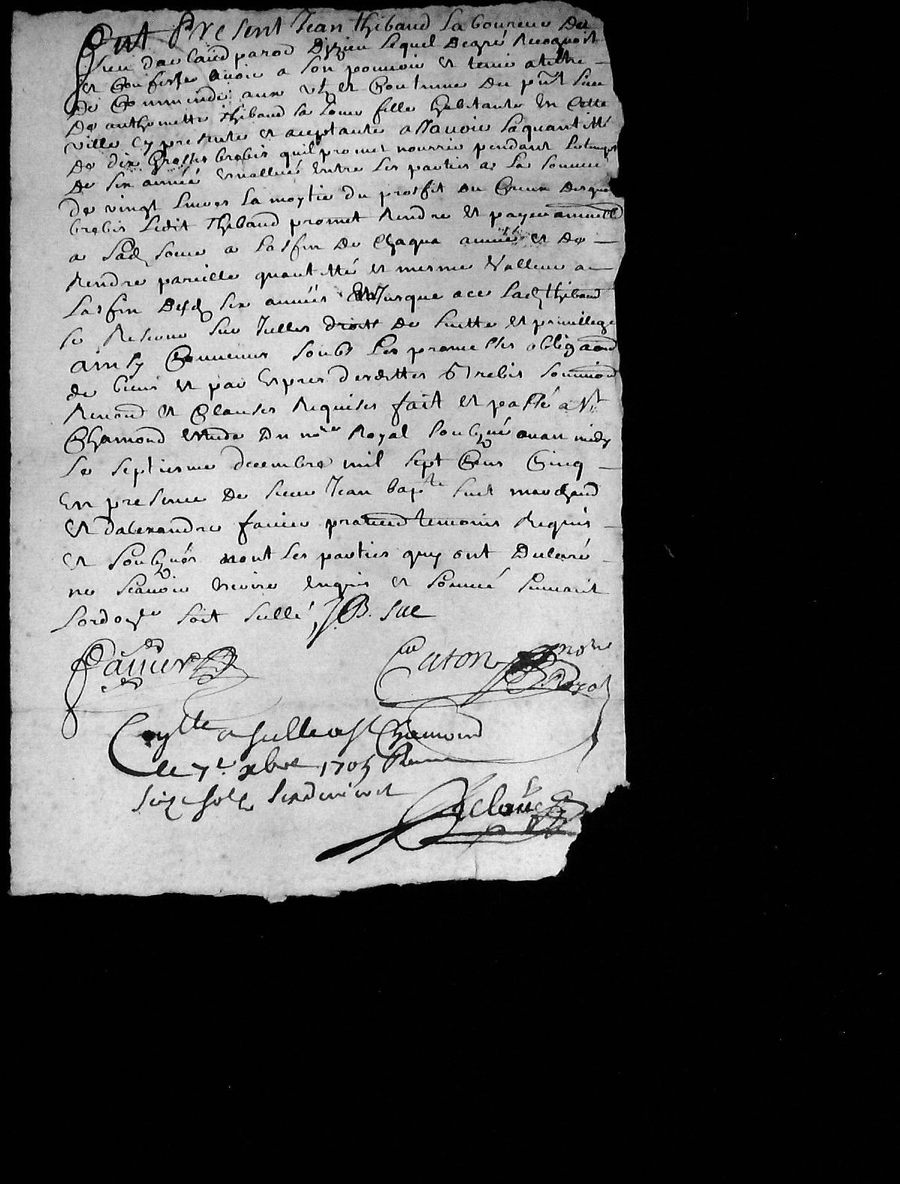 fut Present Jean Thibaud laboureur du
lieu d parod Dizieu lequel degré Recognoit
et Confesse avoir a son pouvoir et tenir a tiltre
de Commande aux et Coutume du pnt lieu
de anthoinette Thibaud sa soeur fille habitante En cette
ville Cy presente et aceptante assavoir la quantitté
de dix Grosses brebis quil promet nourrir pendant le temps
de six année Evalluée Entre les parties a la somme
de vingt livres la moytie du proffit du Creux desque
brebis ledit Thibaud promet Rendre et payer annuell
a sad soeur a la fin de Chaque année et de
Rendre pareille quantitté et mesme valleur a
la fin desd six années Jusque a ce lad Thibaud
se Reserve sur Icelles droit de suitte et privillege
ainsy Convenu soubs les promesses obligaond
de biens et par Expres desdittes brebis soumiond
Renond et Clauses Requises fait et passé a St
Chamond Etude du nore Royal soubgné avant midy
le septiesme decembre mil sept Cens Cinq
En presence de sieur Jean bapte suc marchand
et dalexandre favier praticien temoins Requis
et soubgnés nont les parties quy ont declaré
ne scavoir Ecrire Enquis et sommé suivant
lordoe soit sellé, J. B. suc
Favier Caton nore
Royal
Contlle a selle a St Chamond
le 7e xbre 1705 Reseu
seize sols